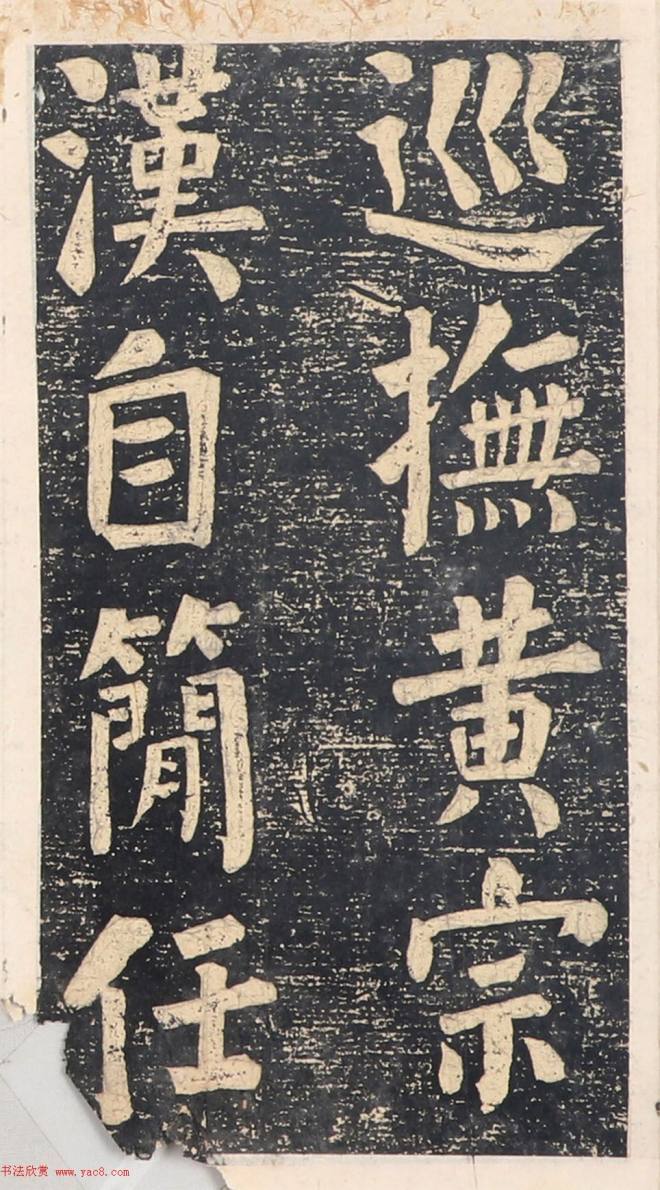 巡撫黄宗
漢自簡任
书法欣赏 www.yac8.com